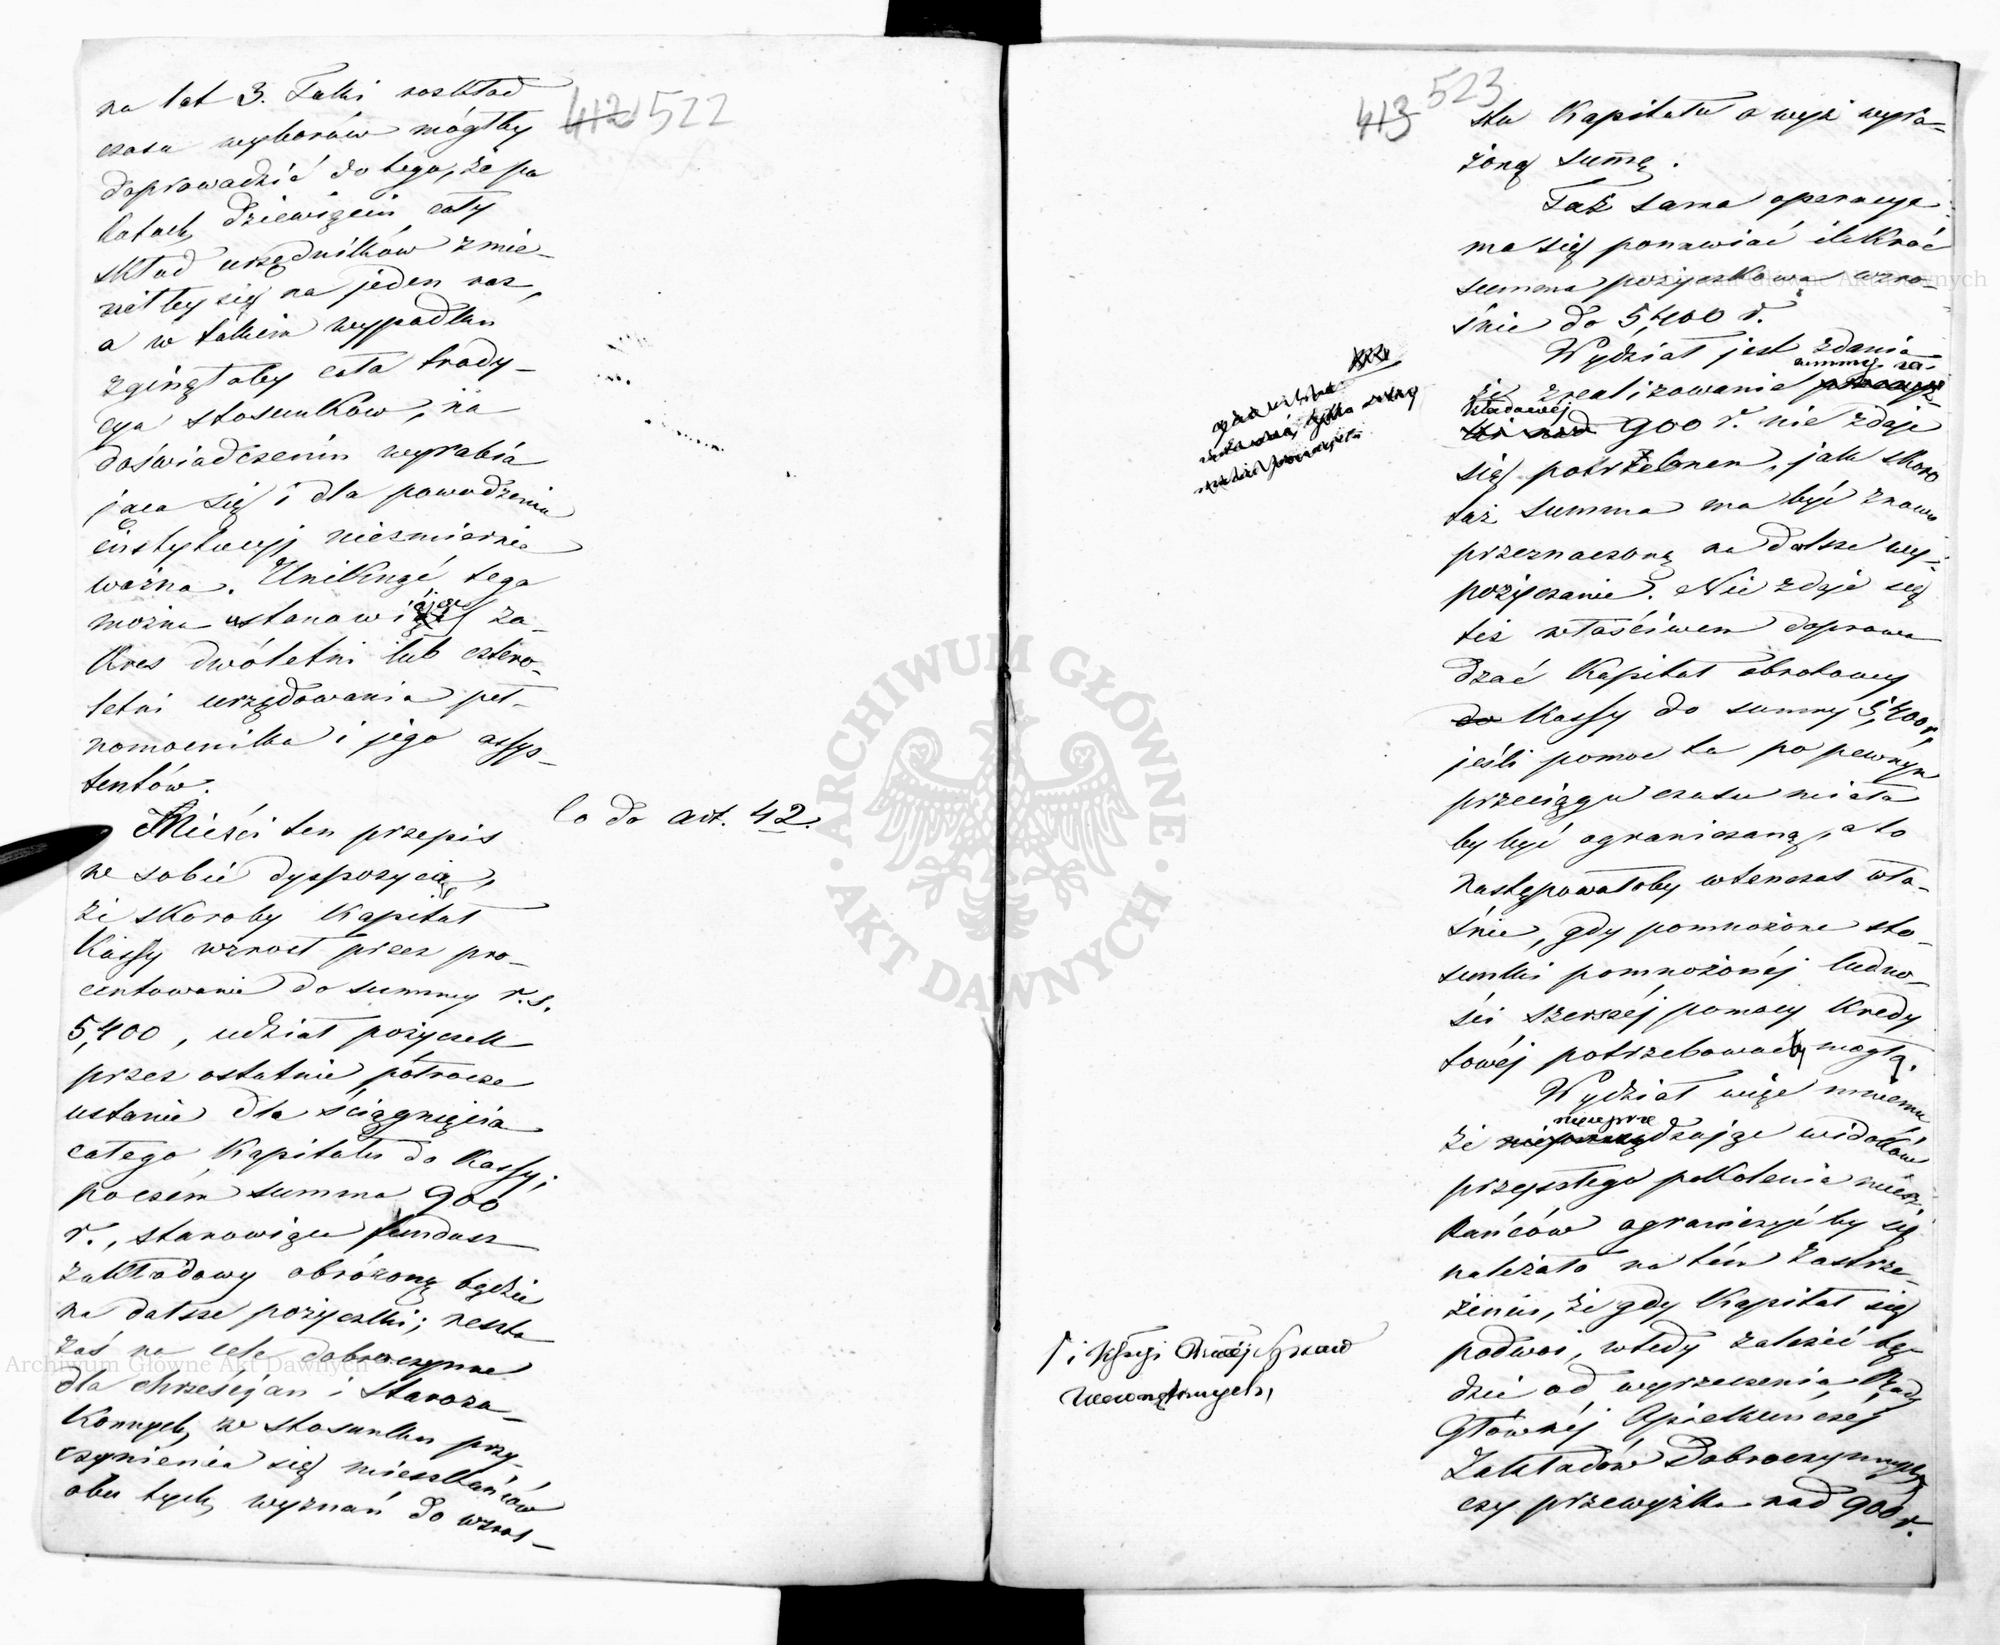 412 522
na lat 3. Taki rozkład
czasu wyborów mógłby
doprowadzić do tego, że po
latach dziewięciu cały
skład urzędników zmie-
niłby się na jeden raz,
a w takim wypadku
zginęłaby cała trady-
cya stosunków, na
doświadczeniu wyrabia
jąca się i dla powodzenia
instytucyj niezmiernie
ważna. Uniknąć tego
można stanowiąc za-
kres dwóletni lub cztero-
letni urzędowania peł-
nomocnika i jego assys-
tentów.
Co do art. 42.
Mieści ten przepis
w sobie dyspozycią,
że skoroby kapitał
Kassy wzrost przez pro-
centowanie do summy r.s.
5,400, udział pożyczek
przez ostatnie półrocze
ustanie dla ściągnięcia
całego kapitału do Kassy;
poczém summa 900
r., stanowiąca fundusz
zakładowy obróconą będzie
na dalsze pożyczki; reszta
zaś na cele dobroczynne
dla chrześcjan i staroza-
konnych w stosunku przy-
czynienia się mieszkańców
obu tych wyznań do wzros-
413 523
stu Kapitału o wyż wyra-
żoną summę.
Taż sama operacya
ma się ponawiać ilekroć
summa pożyczkowa wzro-
śnie do 5,400 r.
Wydział jest zdania
że zrealizowanie summy za-
kładowéj 900 r. nie zdaje
się potrzebnem, jak skoro
taż summa ma być znowu
przeznaczoną na dalsze wy-
pożyczanie. Nie zdaje się
też właściwem doprowa
dzać Kapitał obrotowy
do Kassy do summy 5,400 r,
jeśli pomoc ta po pewnym
przeciągu czasu miała
by być ograniczaną, a to
następowałoby wtenczas wła-
śnie, gdy pomnożone sto-
sunki pomnożonéj ludno-
ści szerszéj pomocy kredy
towéj potrzebowaćby mogła.
Wydział więc mniema
że nieuprzedzając widoków
przyszłego pokolenia miesz
kańców ograniczyć by się
należało na tém zastrze-
żeniu, że gdy Kapitał się
podwoi, wtedy zależéć bę-
dzie od wyrzeczenia Rady
Głównéj Opiekuńczéj
Zakładów Dobroczynnych
i Kssyi Rząéj Spraw
Wewnętrznych,
czy przewyżka nad 900 r.